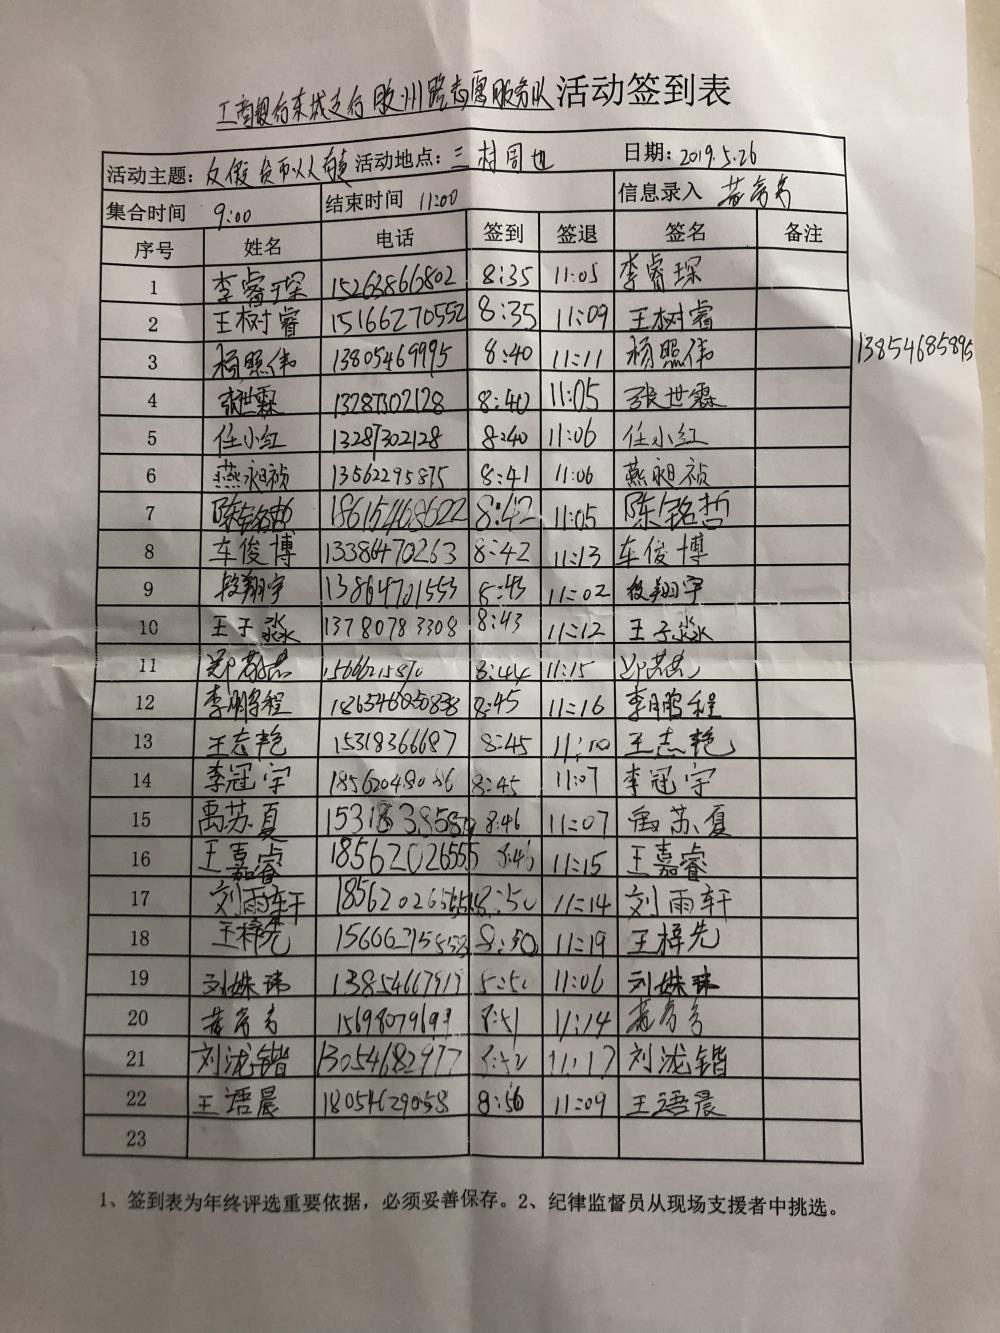 工商银行东城支行胶州路志愿服务队 活动签到表
活动主题： 反假货币 活动地点： 三村周边 日期： 2019.5.26
集合时间 9:00 结束时间 11:00 信息录入
序号 姓名 电话 签到 签退 签名 备注
1 李睿琛 15263866802 8:35 11:05 李睿琛
2 王树睿 15166270552 8:35 11:09 王树睿
3 杨照伟 13805469995 8:40 11:11 杨照伟 13854685895
4 张世霖 13287302128 8:40 11:05 张世霖
5 任小红 13287302128 8:40 11:06 任小红
6 燕昶祯 13562295875 8:41 11:06 燕昶祯
7 陈铭哲 18615468622 8:42 11:05 陈铭哲
8 车俊博 13386470263 8:42 11:13 车俊博
9 段翔宇 13864701553 8:43 11:02 段翔宇
10 王子淼 13780783308 8:43 11:12 王子淼
11 8:44 11:15
12 李鹏程 8:45 11:16 李鹏程
13 王志艳 15318366687 8:45 11:10 王志艳
14 李冠宇 8:45 11:07 李冠宇
15 禹苏夏 8:46 11:07 禹苏夏
16 王嘉睿 18562026555 8:46 11:15 王嘉睿
17 刘雨轩 8:50 11:14 刘雨轩
18 王梓先 8:50 11:19 王梓先
19 刘姝玮 11:06 刘姝玮
20 8:51 11:14
21 刘泷锴 13054682977 8:52 11:17 刘泷锴
22 王语晨 18054629058 8:56 11:09 王语晨
23
1、签到表为年终评选重要依据，必须妥善保存。2、纪律监督员从现场支援者中挑选。